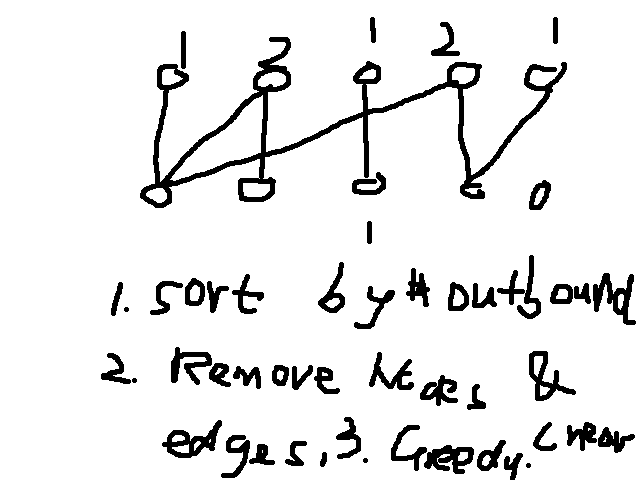 1 2 1 2 1
0
1
1. sort by # outbound
2. Remove Nodes &
edges, 3. Greedy.